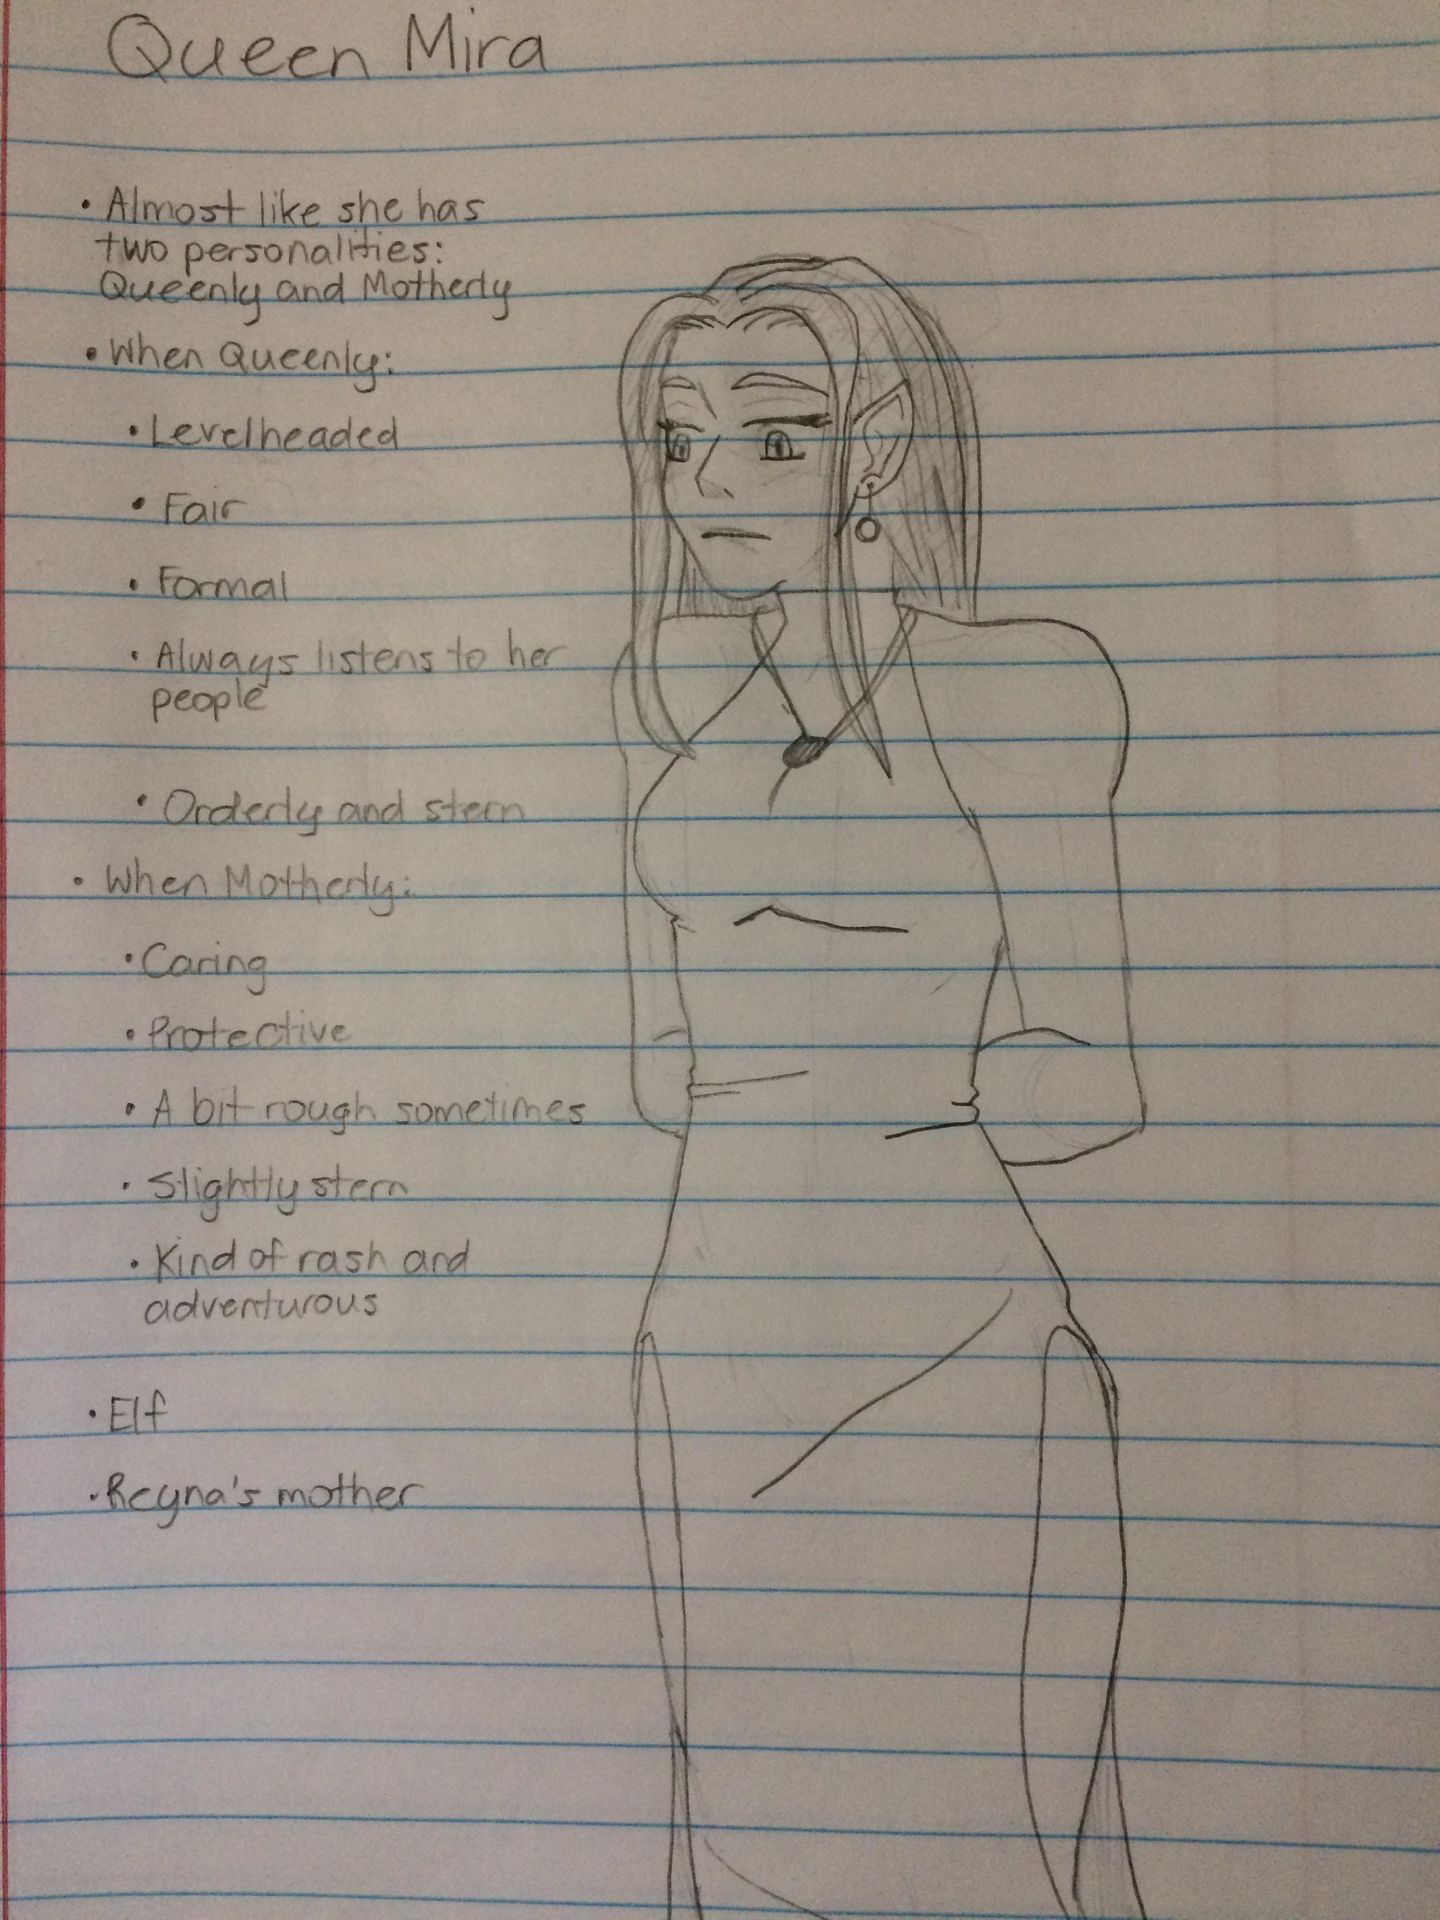 Queen Mira
• Almost like she has
two personalities:
Queenly and Motherly
• When Queenly:
• Levelheaded
• Fair
• Formal
• Always listens to her
people
• Orderly and stern
• When Motherly:
• Caring
• Protective
• A bit rough sometimes
• Slightly stern
• Kind of rash and
adventurous
• Elf
• Reyna's mother